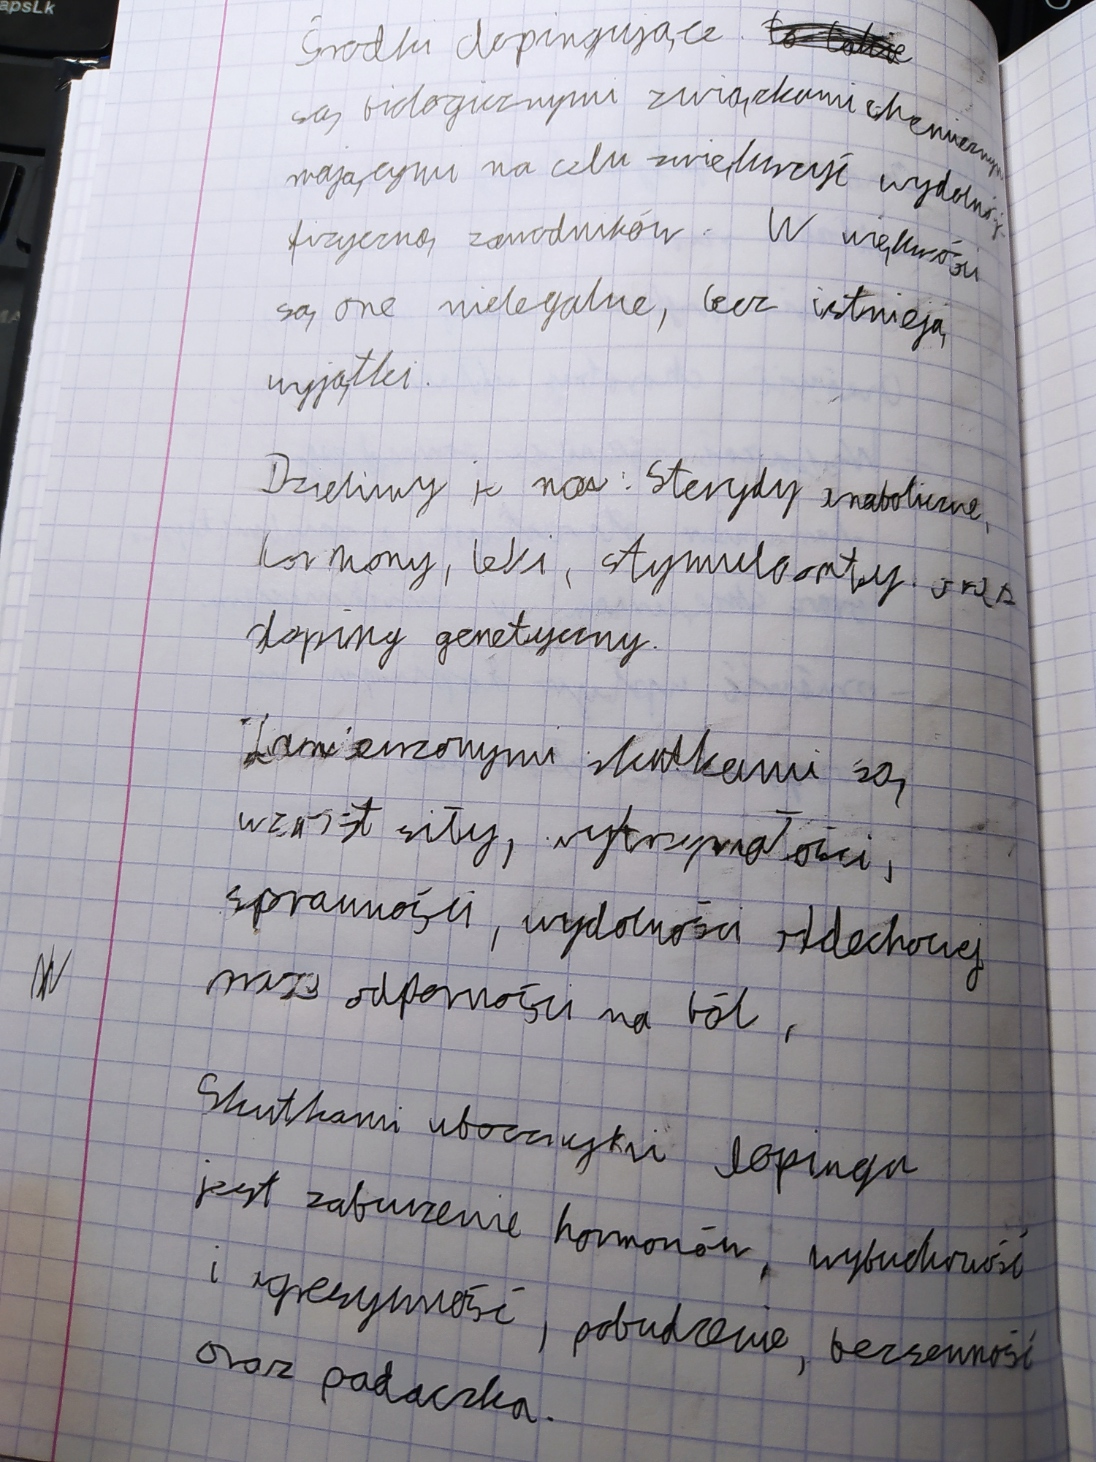 apsLk
Środki dopingujące
są biologicznymi związkami chemicznymi
mającymi na celu zwiększyć wydolność
fizyczną zawodników. W większości
są one nielegalne, lecz istnieją
wyjątki.
Dzielimy je na: Sterydy anaboliczne,
hormony, leki, stymulanty oraz
doping genetyczny.
Zamierzonymi skutkami są
wzrost siły, wytrzymałości,
sprawności, wydolności oddechowej
oraz odporności na ból,
Skutkami ubocznyki dopingu
jest zaburzenie hormonów, wybuchowość
i agresywność, pobudzenie, bezsenność
oraz padaczka.